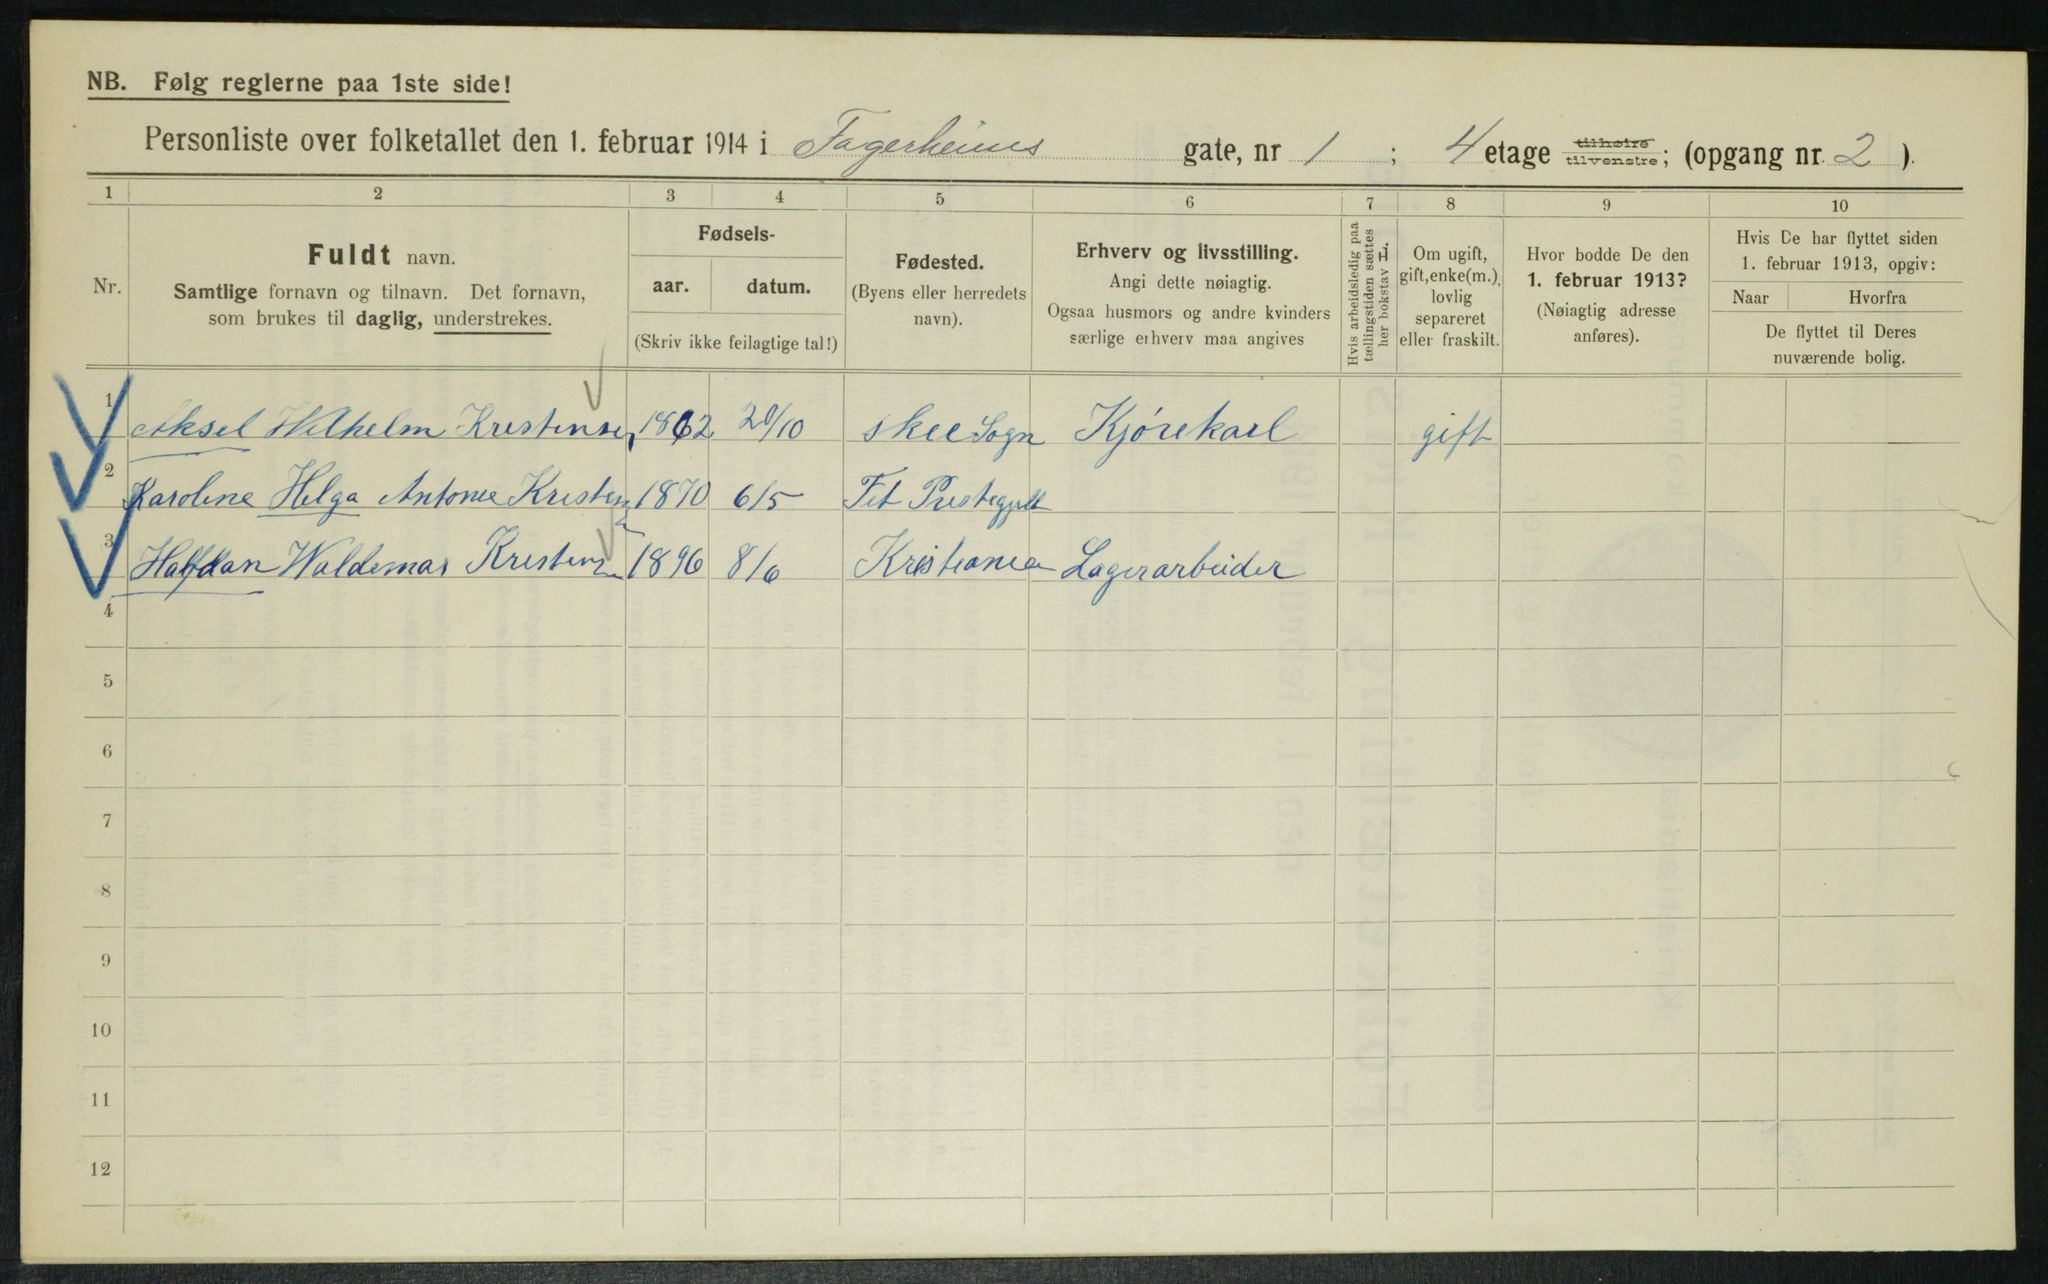 NB. Følg reglerne paa 1ste side!
Personliste over folketallet den 1. februar 1914 i Fagerheims gate, nr 1 ; 4 etage tilhøire tilvenstre; (opgang nr. 2 ).
1 2 3 4 5 6 7 8 9 10
Nr.
Fuldt navn.
Samtlige fornavn og tilnavn. Det fornavn,
som brukes til daglig, understrekes.
Fødsels-
aar. datum.
(Skriv ikke feilagtige tal!)
Fødested.
(Byens eller herredets
navn).
Erhverv og livsstilling.
Angi dette nøiagtig.
Ogsaa husmors og andre kvinders
særlige erhverv maa angives
Hvis arbeidsledig paa
tællingstiden sættes
her bokstav L.
Om ugift,
gift, enke(m.),
lovlig
separeret
eller fraskilt.
Hvor bodde De den
1. februar 1913?
(Nøiagtig adresse
anføres).
Hvis De har flyttet siden
1. februar 1913, opgiv:
Naar Hvorfra
De flyttet til Deres
nuværende bolig.
1 Aksel Wilhelm Kristensen 1862 20/10 Skee Sogn Kjørekarl gift
2 Karoline Helga Antonie Kristen 1870 6/5 Fet Prestegjeld
3 Halfdan Waldemar Kristen 1896 8/6 Kristiania Lagerarbeider
4
5
6
7
8
9
10
11
12